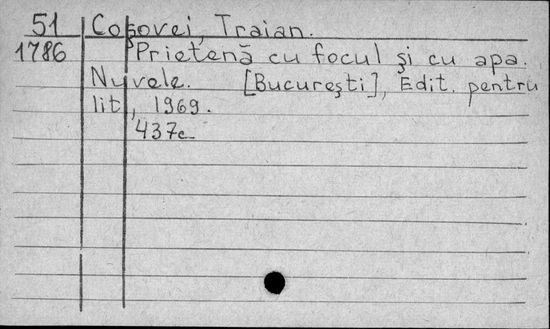 51 Coșovei, Traian.
1786 Prietenă cu focul și cu apa.
Nuvele. [București], Edit. pentru
lit., 1969.
437c